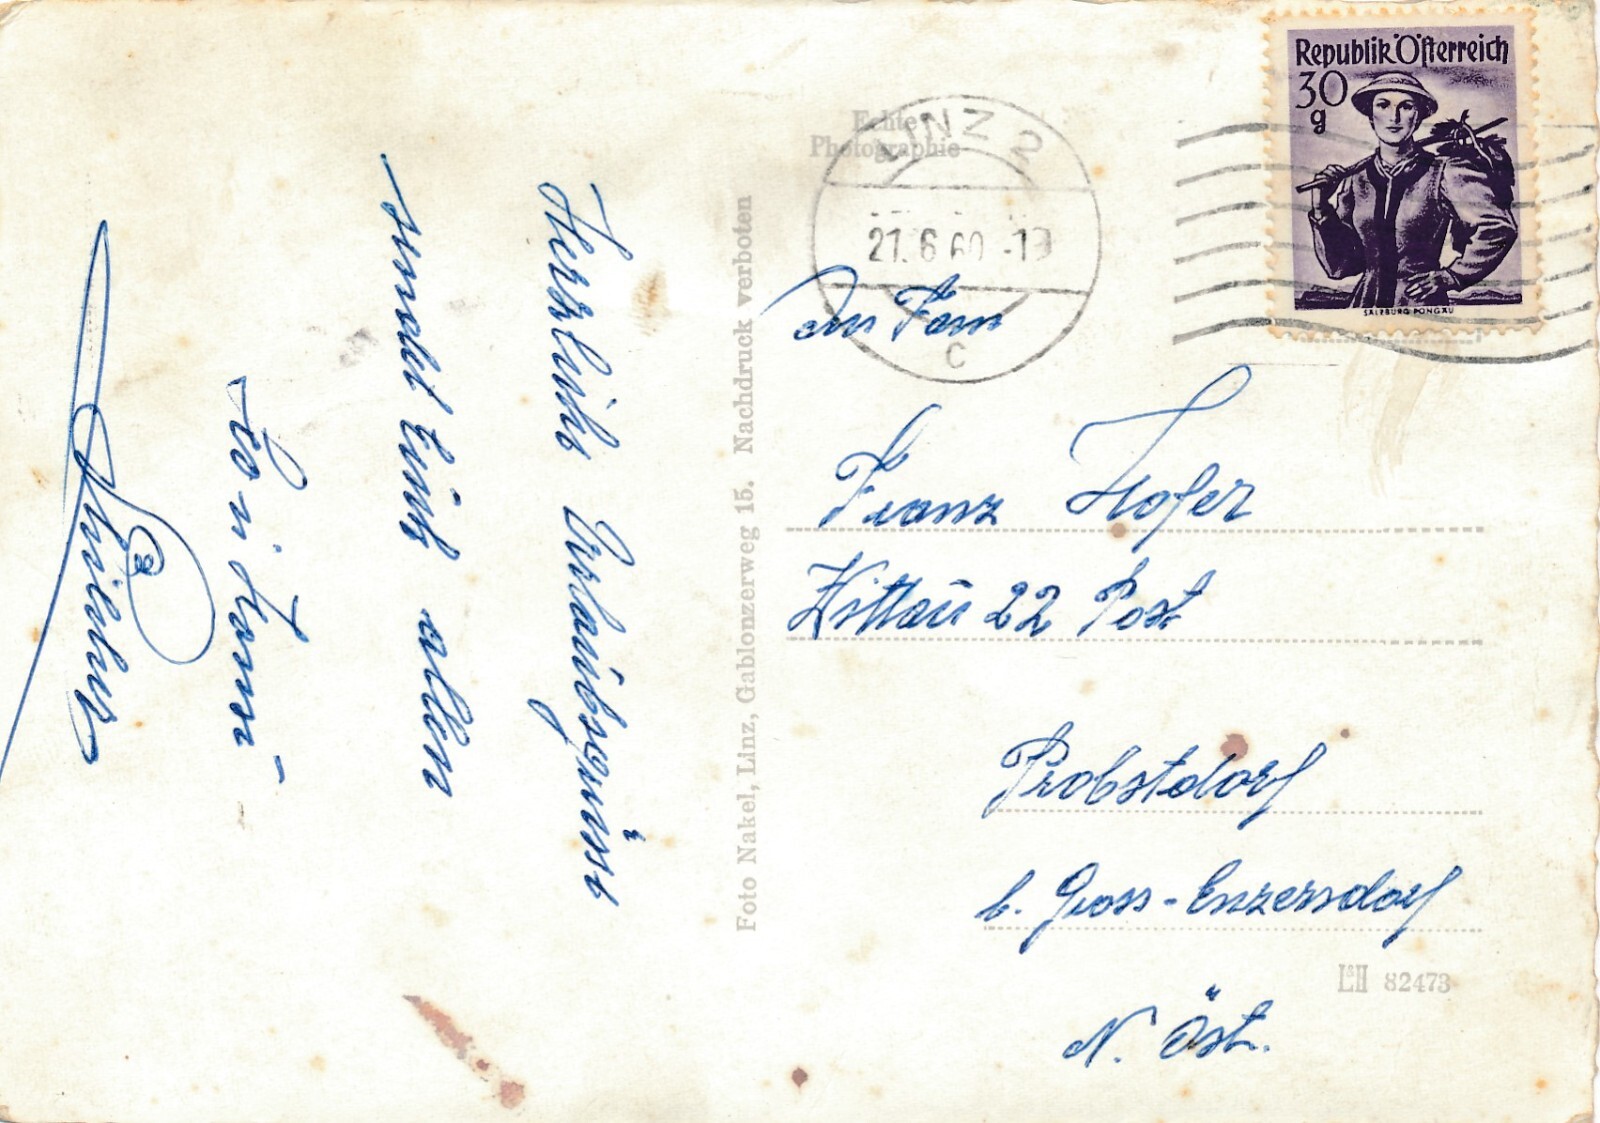 Herzliche Urlaubsgrüsse
sendet Euch allen
Echte
Photographie
Foto Nakel, Linz, Gablonzerweg 15. Nachdruck verboten
LINZ 2
21.6.60-19
c
Republik Österreich
30
g
SALZBURG PONGAU
An Fam
Franz Hofer
Wittau 22 Post
Probstdorf
b. Gross-Enzersdorf
N. Öst.
L&H 82473